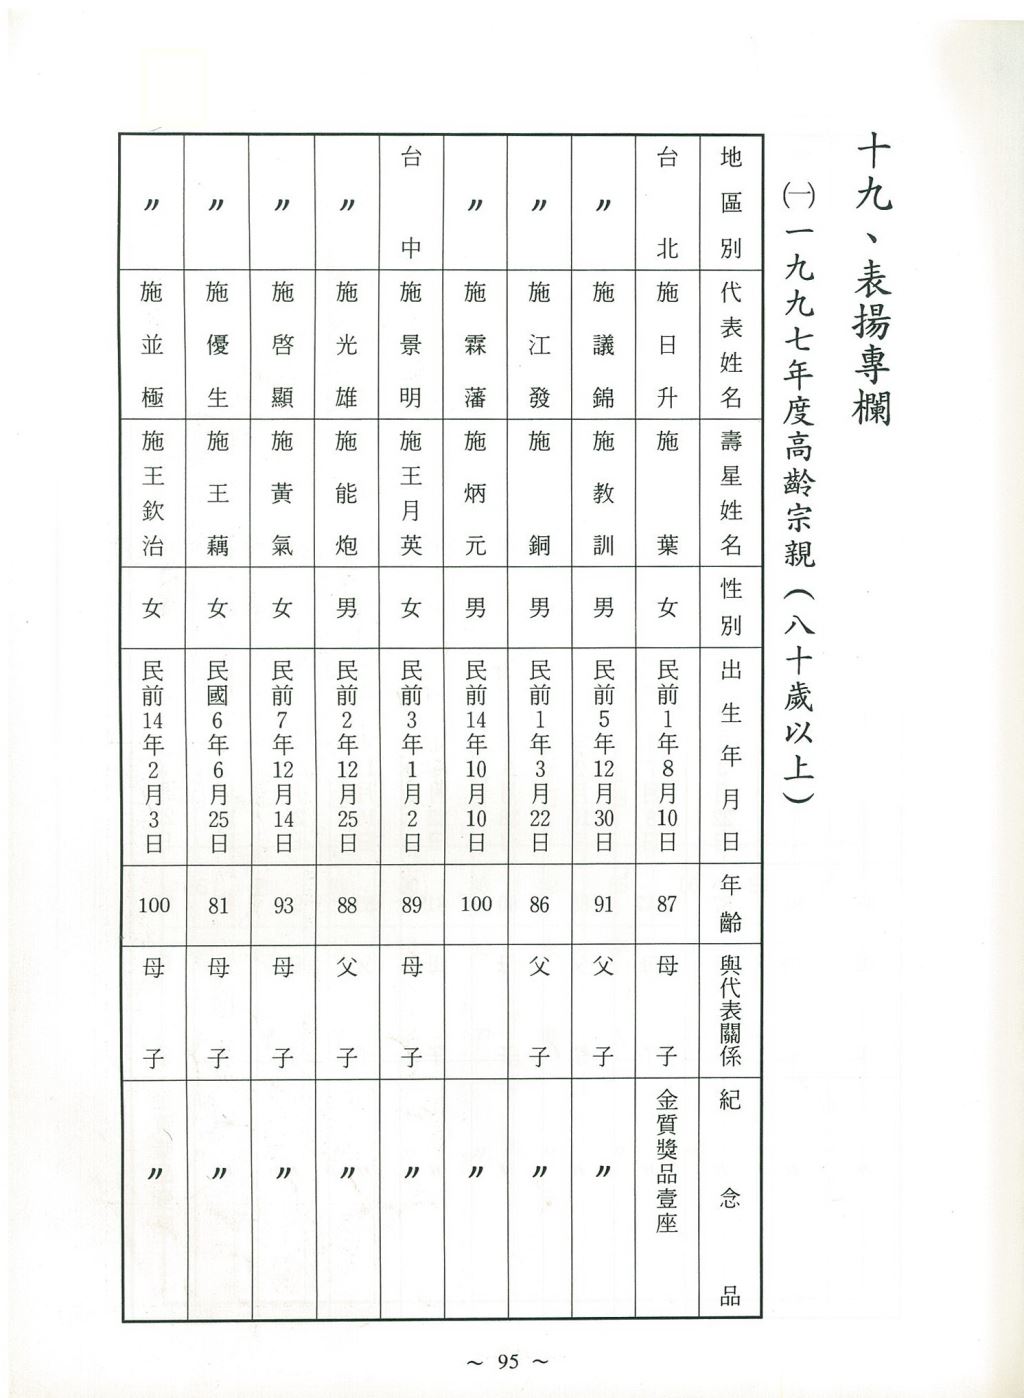 十九、表揚專欄
㈠一九九七年度高齡宗親(八十歲以上)
地區別 代表姓名 壽星姓名 性別 出生年月日 年齡 與代表關係 紀念品
台北 施日升 施葉 女 民前1年8月10日 87 母子 金質獎品壹座
〃 施議錦 施教訓 男 民前5年12月30日 91 父子 〃
〃 施江發 施銅 男 民前1年3月22日 86 父子 〃
〃 施霖藩 施炳元 男 民前14年10月10日 100 〃
台中 施景明 施王月英 女 民前3年1月2日 89 母子 〃
〃 施光雄 施能炮 男 民前2年12月25日 88 父子 〃
〃 施啓顯 施黃氣 女 民前7年12月14日 93 母子 〃
〃 施優生 施王藕 女 民國6年6月25日 81 母子 〃
〃 施並極 施王欽治 女 民前14年2月3日 100 母子 〃
~ 95 ~